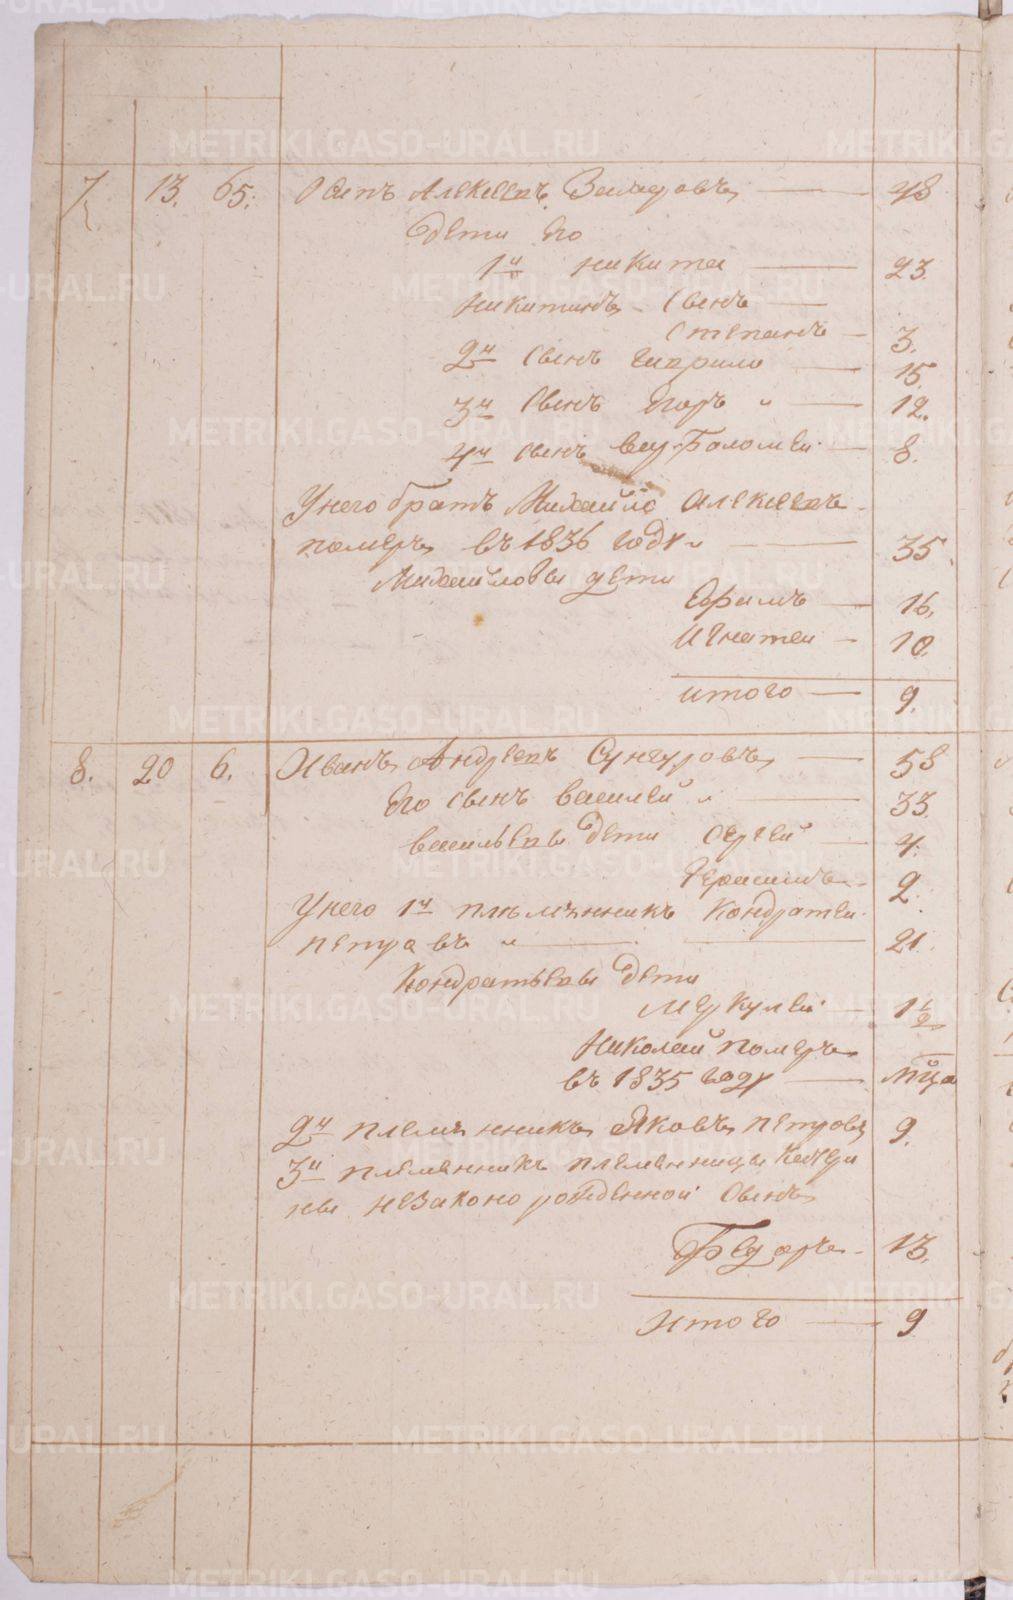 7. 13. 65. Осипъ Алексеевъ — 48
Дети его
1й Никита — 23.
Никитинъ Сынъ —
Степанъ — 3.
2й Сынъ Гаврило — 15.
3й Сынъ Егоръ „ — 12.
4й Сынъ — 8.
У него братъ Михайло Алексеевъ
померъ въ 1836 году „ — 35.
Михайловы дети
Ефимъ — 16.
Игнатей — 10.
итого — 9.
8. 20 6. Иванъ Андреевъ Сунгуровъ — 58
Его сынъ Василей „ — 33.
Васильевы дети Сергей — 4.
Герасимъ — 2.
У него 1й племянникъ Кондратей
Петровъ „ — 21.
Кондратьевы дети
Меркулей — 1 1/2
Николай померъ
въ 1835 году — м͠ца
2й племянникъ Яковъ Петровъ 9.
3й племянникъ племянницы
незаконорожденной Сынъ
Федоръ — 13.
итого — 9
METRIKI.GASO-URAL.RU